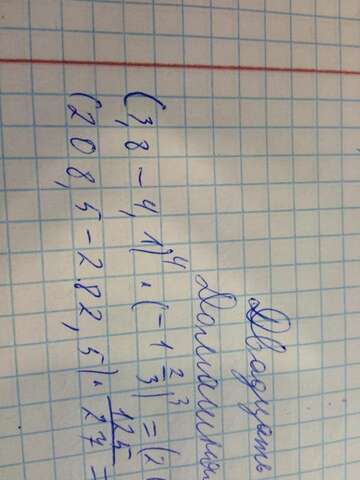 Двадцать
Домашня
(3,8 - 4,1)⁴ · (-1 2/3)³ = (2
(208,5 - 282,5) · 125/27 =